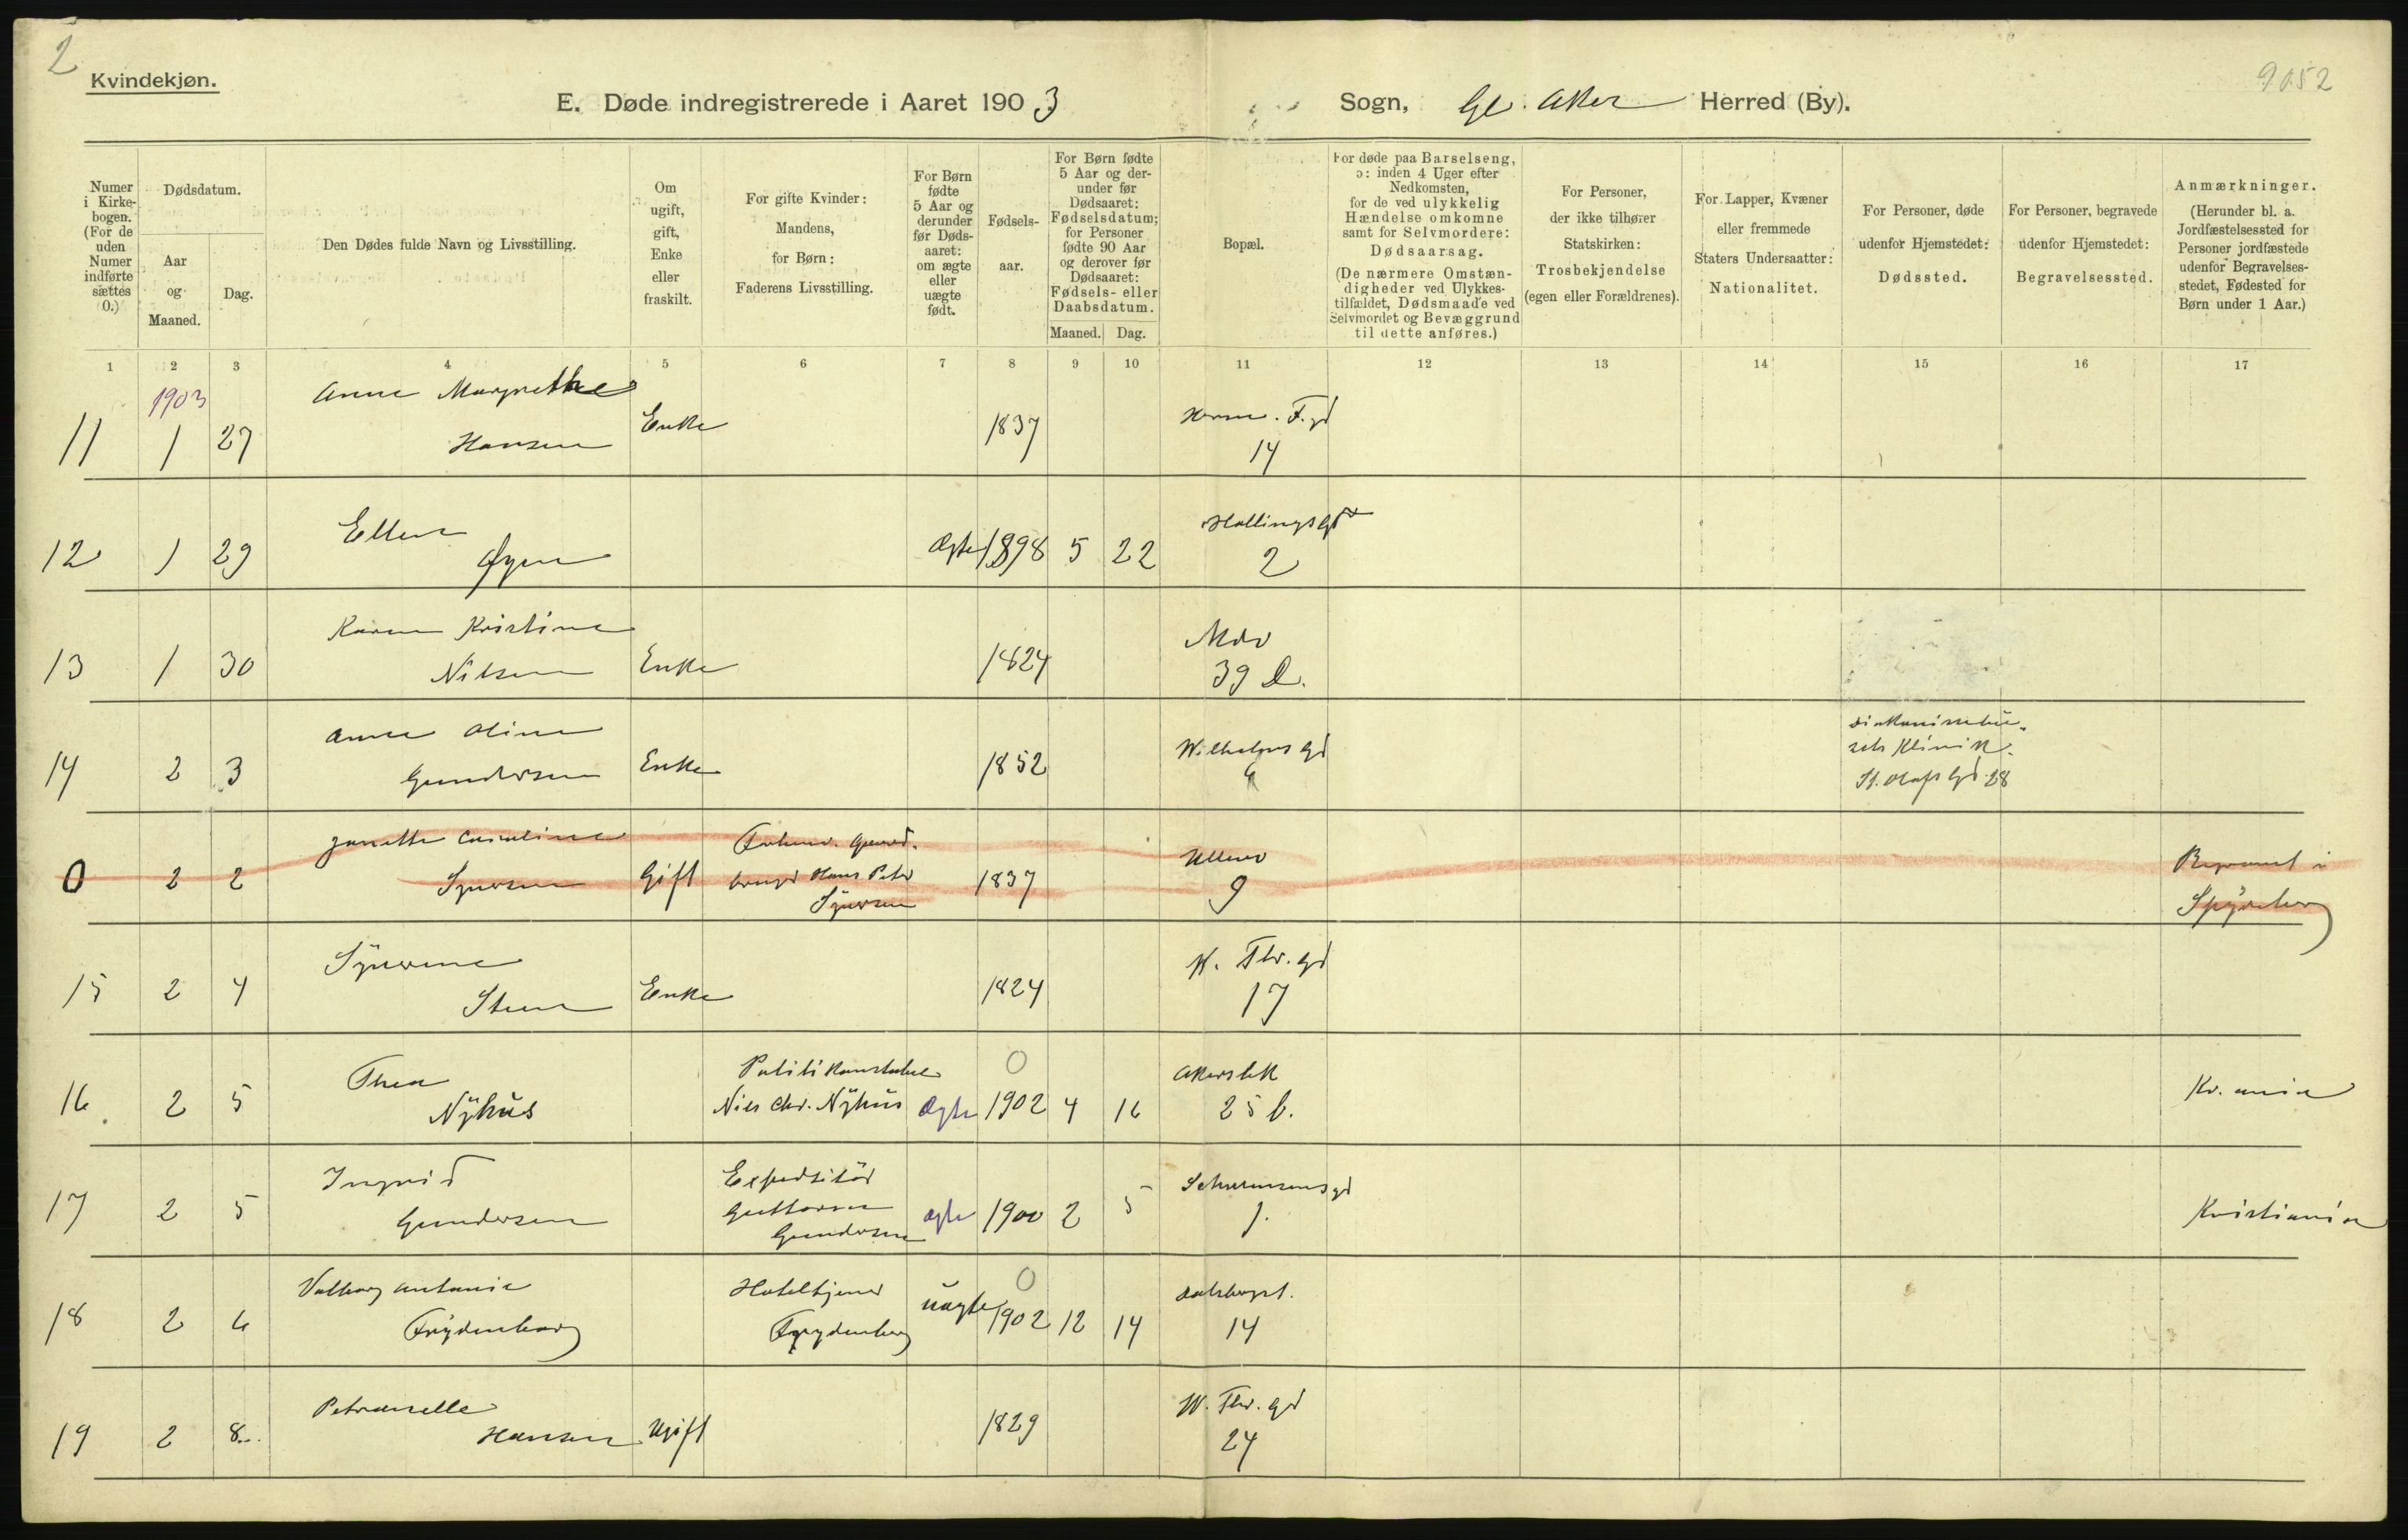 2
Kvindekjøn.
9052
E. Døde indregistrerede i Aaret 1903
Sogn, Gl. Aker Herred (By).
Numer i Kirkebogen. (For de uden Numer indførte sættes 0.)
Dødsdatum.
Aar og Maaned.
Dag.
Den Dødes fulde Navn og Livsstilling.
Om ugift, gift, Enke eller fraskilt.
For gifte Kvinder: Mandens, for Børn: Faderens Livsstilling.
For Børn fødte 5 Aar og derunder før Dødsaaret: om ægte eller uægte født.
Fødselsaar.
For Børn fødte 5 Aar og derunder før Dødsaaret: Fødselsdatum; for Personer fødte 90 Aar og derover før Dødsaaret: Fødsels- eller Daabsdatum.
Maaned. Dag.
Bopæl.
For døde paa Barselseng, ɔ: inden 4 Uger efter Nedkomsten, for de ved ulykkelig Hændelse omkomne samt for Selvmordere: Dødsaarsag. (De nærmere Omstændigheder ved Ulykkestilfældet, Dødsmaade ved Selvmordet og Bevæggrund til dette anføres.)
For Personer, der ikke tilhører Statskirken: Trosbekjendelse (egen eller Forældrenes).
For Lapper, Kvæner eller fremmede Staters Undersaatter: Nationalitet.
For Personer, døde udenfor Hjemstedet: Dødssted.
For Personer, begravede udenfor Hjemstedet: Begravelsessted.
Anmærkninger. (Herunder bl. a. Jordfæstelsessted for Personer jordfæstede udenfor Begravelsesstedet, Fødested for Børn under 1 Aar.)
1 2 3 4 5 6 7 8 9 10 11 12 13 14 15 16 17
1903
Anne Margrethe
11 1 27 Hansen Enke 1837 14
Ellen
12 1 29 Øyen Ægte 1898 5 22 Hallingsgd 2
Karen Kristine
13 1 30 Nilsen Enke 1824 39 D.
Anne Oline
14 2 3 Gundersen Enke 1852 Wilhelms gd
Klinik
St. Olafs Gd 28
Janette Caroline
0 2 2 Syversen Gift Hans Peter Syversen 1837 Ullev 9 Begravet i
Spydeberg
Syverine
15 2 4 Steen Enke 1824 W. Thr. gd 17
Thea
16 2 5 Nyhus Politikonstabel Nils Chr. Nyhus Ægte 0 1902 4 16 Akersbk 25 b. Kr.ania
Ingrid
17 2 5 Gundersen Expeditör Guttorm Gundersen ægte 1900 2 5 Schwensens gd 1. Kristiania
Valborg Antonie
18 2 6 Frydenborg Hoteltjener Frydenberg uægte 0 1902 12 14 Dalsbergst. 14
Petronelle
19 2 8 Hansen Ugift 1829 W. Thr. gd 24